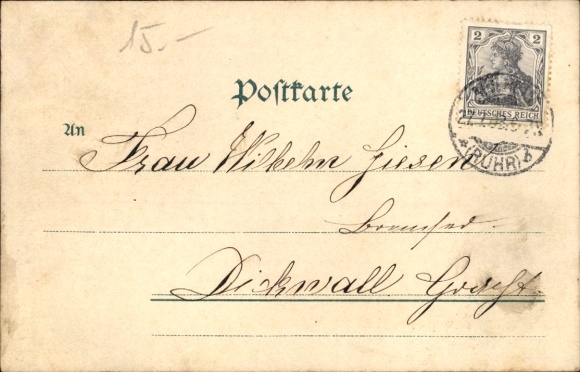 15.-
2 2
DEUTSCHES REICH
(RUHR)
Postkarte
An
Frau Wilhelm Giesen
Dickwall Gracht